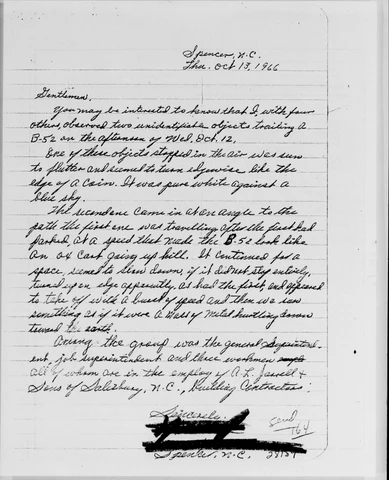 Spencer, N.C.
Thu. Oct 13, 1966
Gentlemen,
You may be interested to know that I, with four
others, observed two unidentifiable objects trailing a
B-52 on the afternoon of Wed. Oct. 12,
One of these objects stopped in the air was seen
to flutter and seemed to turn edgewise like the
edge of a coin. It was pure white against a
blue sky.
The second one came in at an angle to the
path the first one was travelling after the first had
parked, at a speed that made the B-52 look like
an ox cart going up hill. It continued for a
space, seemed to slow down, if it did not stop entirely,
turned up on edge apparently, as had the first, and appeared
to take off with a burst of speed and then we saw
something as if it were a mass of metal hurtling down
toward the earth.
Among the group was the general Superintend-
ent, job Superintendent and three workmen
all of whom are in the employ of A. L. Jarrell &
Sons of Salisbury, N.C., building Contractors.
Sincerely
Send
164
Spencer, N.C.
28159